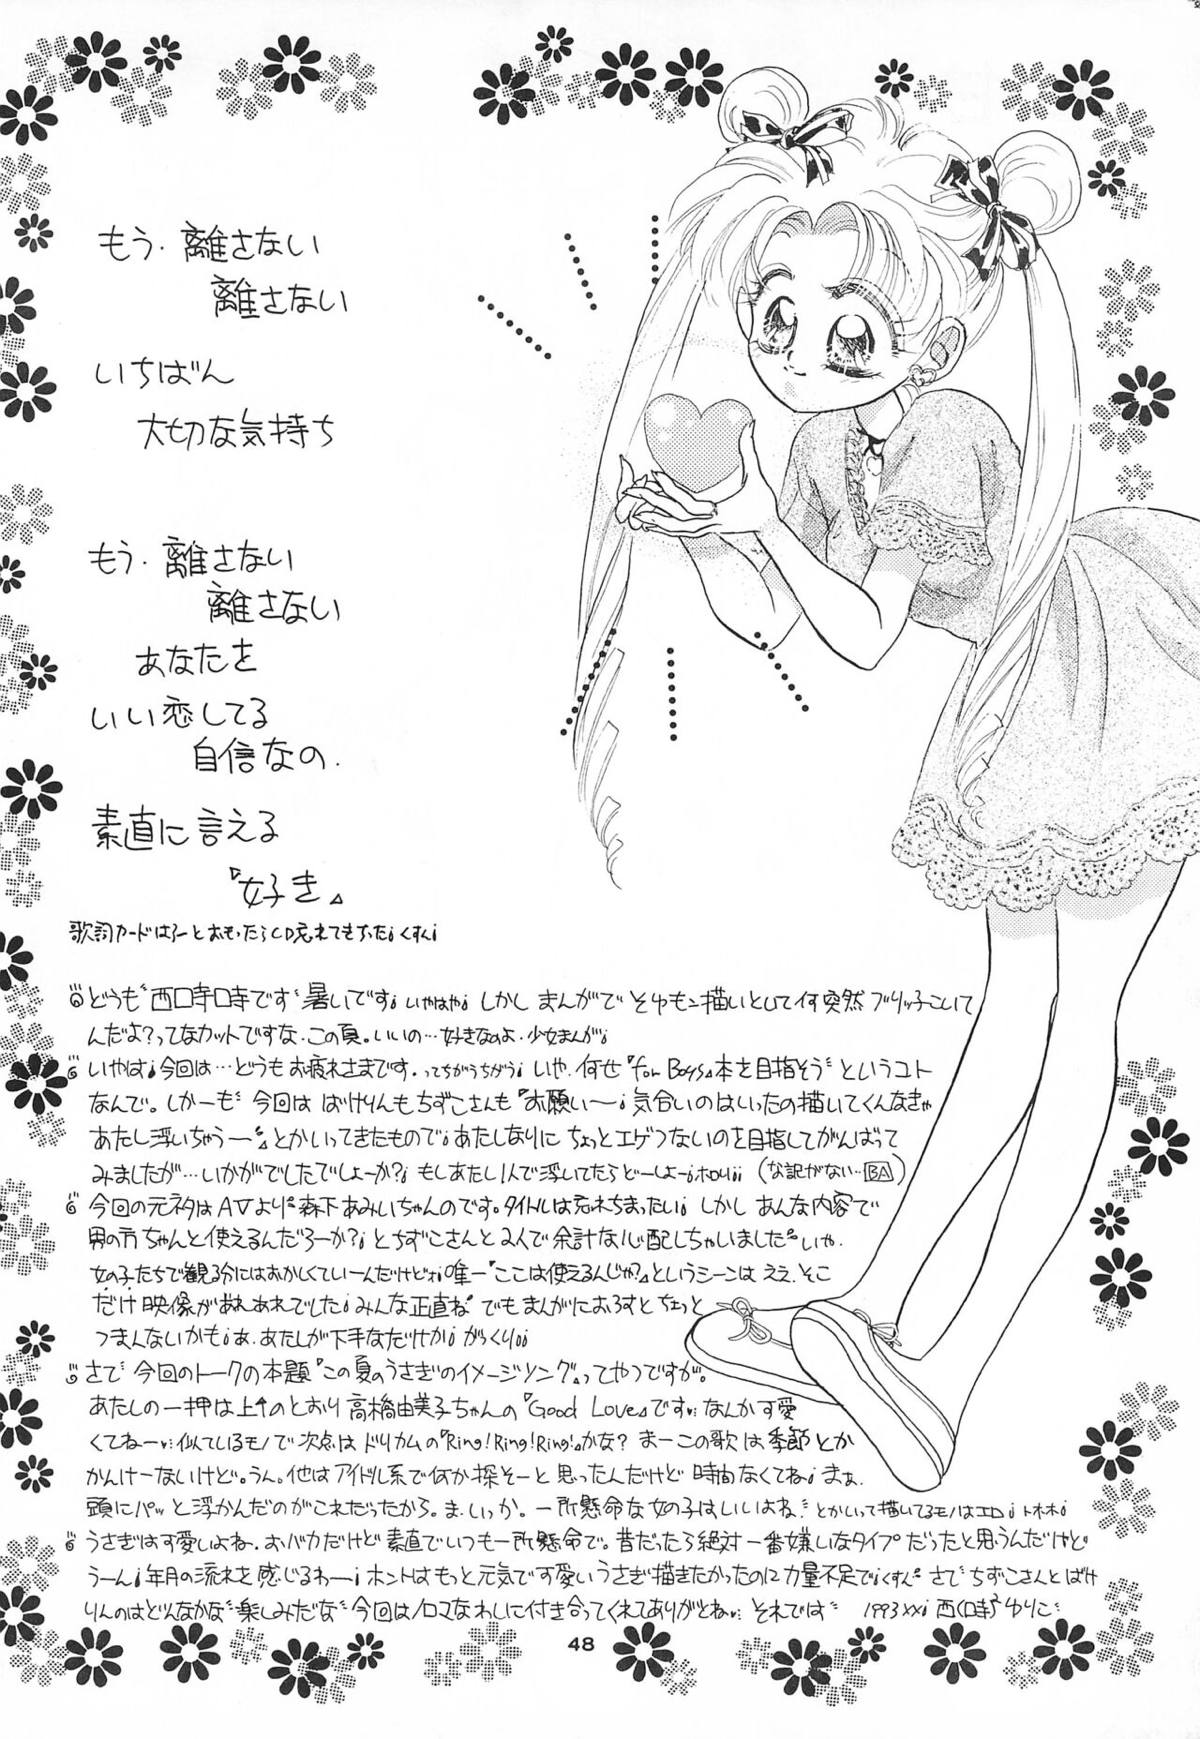 もう・離さない
離さない
いちばん
大切な気持ち
もう・離さない
離さない
あなたを
いい恋してる
自信なの.
素直に言える
『好き』
歌詞カードはろーとおもったらCD忘れてきちゃった¡くすん¡
どうも〝西口寺口寺です〟暑いです¡いやはや¡しかし まんがで そゆモン描いといて何突然 ブリッ子こいて
んだよ?ってなカットですな.この夏。いいの…好きなのよ.少女まんが¡
いやは¡今回は…どうもお疲れさまです.ってちがうちがう¡いや.何せ『for Boys』本を目指そう〟というコト
なんで。しかーも〝今回は ばけりんもちずこさんも〝お願い〜¡気合いのはいったの描いてくんなきゃ
あたし浮いちゃう〜〟』とかいってきたもので¡あたしなりに ちょっとエゲツないのを目指してがんばって
みましたが…いかがでしたでしょーか?¡もしあたし1人で浮いてたらどーしよー¡ (な訳がない…BA)
今回の元ネタはAVより〝森下あみいちゃんのです。タイトルは忘れちまったい¡しかし あんな内容で
男の方ちゃんと使えるんだろーか?¡とちずこさんと2人で余計な心配しちゃいました〟いや.
女の子たちで観る分にはおかしくていーんだけどさ¡唯一『ここは使えるんじゃ?』というシーンは ええ.そこ
だけ映像があれあれでした¡みんな正直ね〟でもまんがにおろすと ちょっと
つまんないかも¡あ.あたしが下手なだけか¡がっくり¡¡
さて〝今回のトークの本題『この夏のうさぎ』のイメージソング』ってやつですが。
あたしの一押は上のとおり 高橋由美子ちゃんの『Good Love』です…なんか可愛
くてねー…似ているモノで次点は ドリカムの『Ring!Ring!Ring!』かな? まーこの歌は季節とか
かんけーないけど。うん。他はアイドル系で何か探そーと思ったんだけど 時間なくてね¡まぁ
頭にパッと浮かんだのがこれだったから。ま.いっか。一所懸命な女の子はいいよね〟とかいって描いてるモノはエロ¡トホホ¡
うさぎは可愛しよね.おバカだけど素直でいつも一所懸命で。昔だったら絶対一番嫌いなタイプだったと思うんだけど
うーん¡年月の流れを感じるわー¡ホントはもっと元気で可愛いうさぎ描きたかったのに力量不足で¡くすん〟さて〝ちずこさんとばけ
りんのはどんなかな〝楽しみだな〟今回はノロマなわしに付き合ってくれてありがとね… それでは〟 1993xx¡ 西口寺²ゆりこ
48